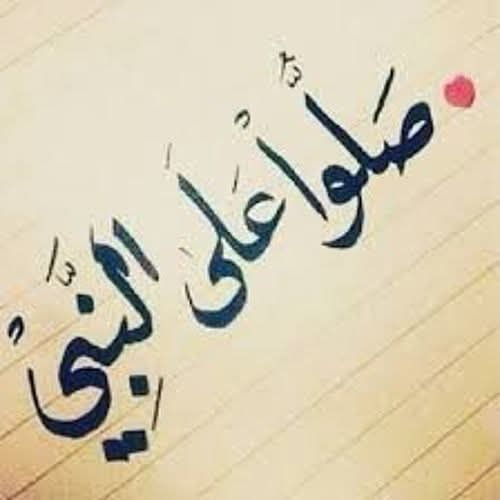 صَلُّوا عَلَى النَّبِيّ